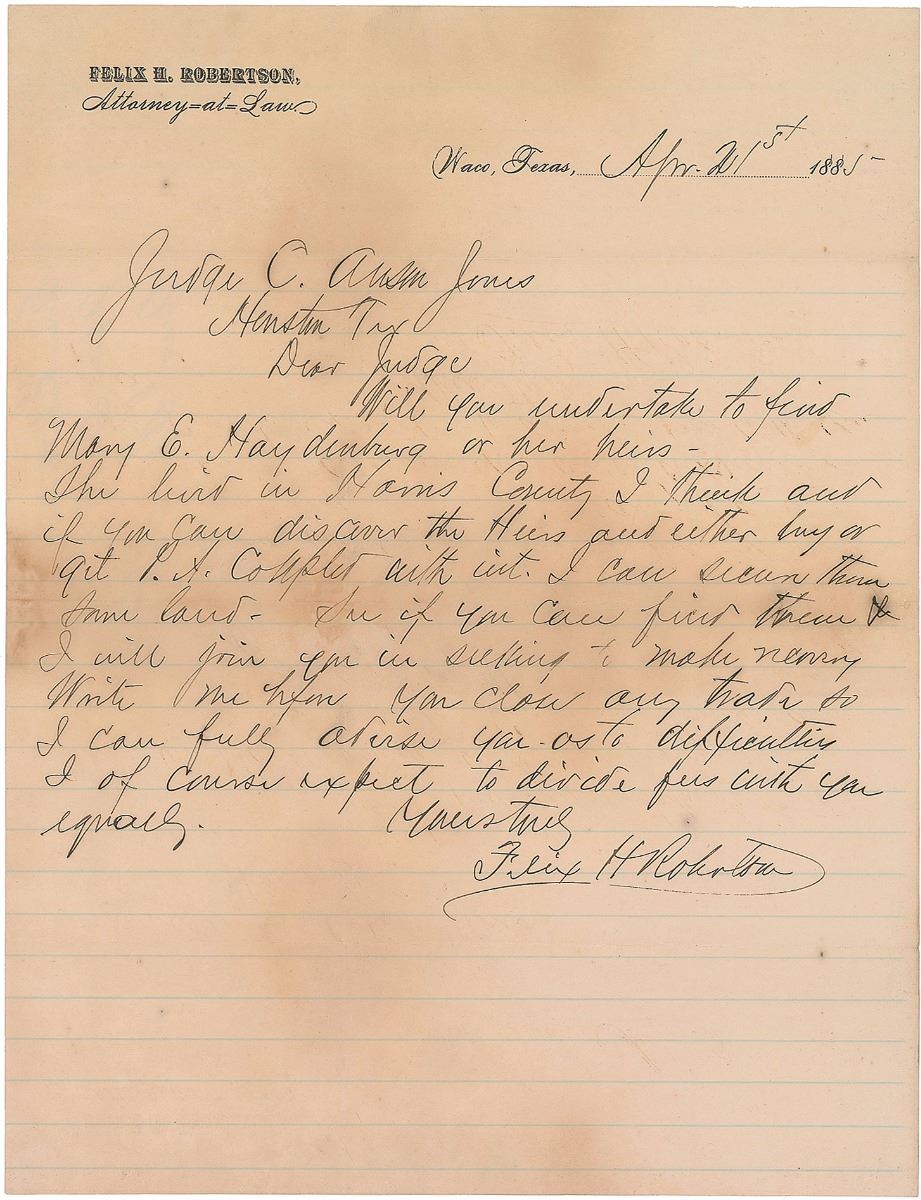 FELIX H. ROBERTSON,
Attorney=at=Law.
Waco, Texas, Apr. 21st 1885
Judge C. Anson Jones
Houston Tex
Dear Judge
Will you undertake to find
Mary E. Haydenburg or her heirs -
She lived in Harris County I think and
if you can discover the Heirs and either buy or
get P. A. Coupled with int. I can secure them
some land - See if you can find them &
I will join you in seeking to make recovery
Write me before you close any trade so
I can fully advise you - as to difficulties
I of course expect to divide fees with you
equally. Yours truly
Felix H Robertson